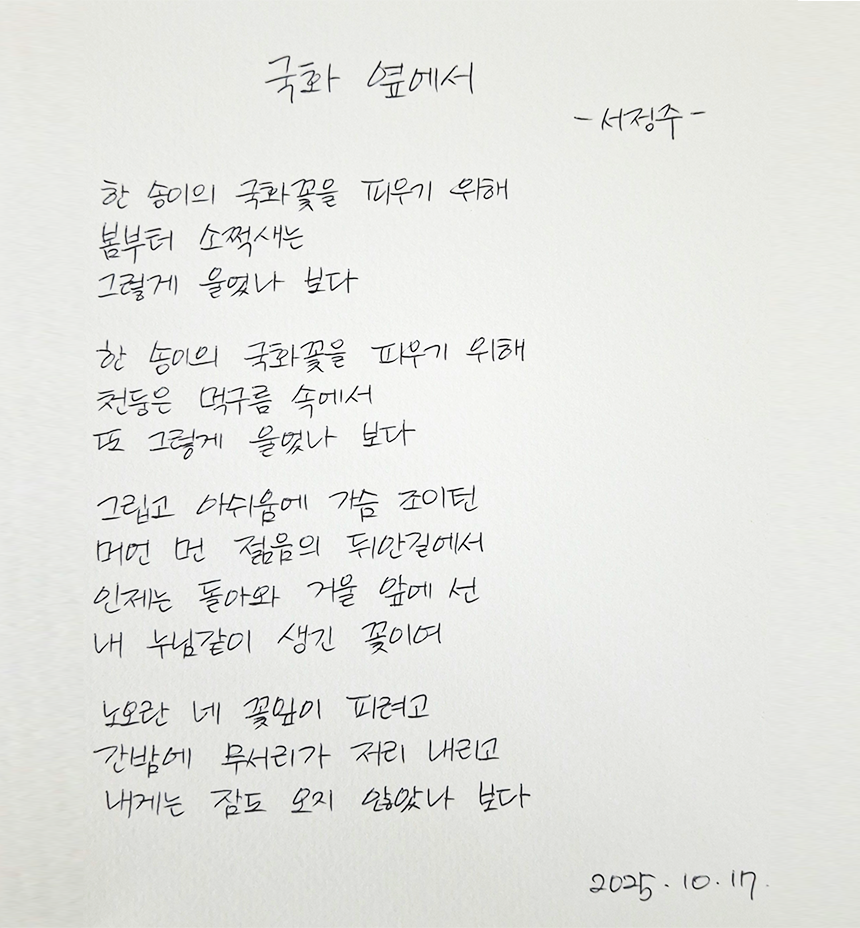 국화 옆에서
- 서정주 -
한 송이의 국화꽃을 피우기 위해
봄부터 소쩍새는
그렇게 울었나 보다
한 송이의 국화꽃을 피우기 위해
천둥은 먹구름 속에서
또 그렇게 울었나 보다
그립고 아쉬움에 가슴 조이턴
머언 먼 젊음의 뒤안길에서
인제는 돌아와 거울 앞에 선
내 누님같이 생긴 꽃이여
노오란 네 꽃잎이 피려고
간밤에 무서리가 저리 내리고
내게는 잠도 오지 않았나 보다
2025. 10. 17.